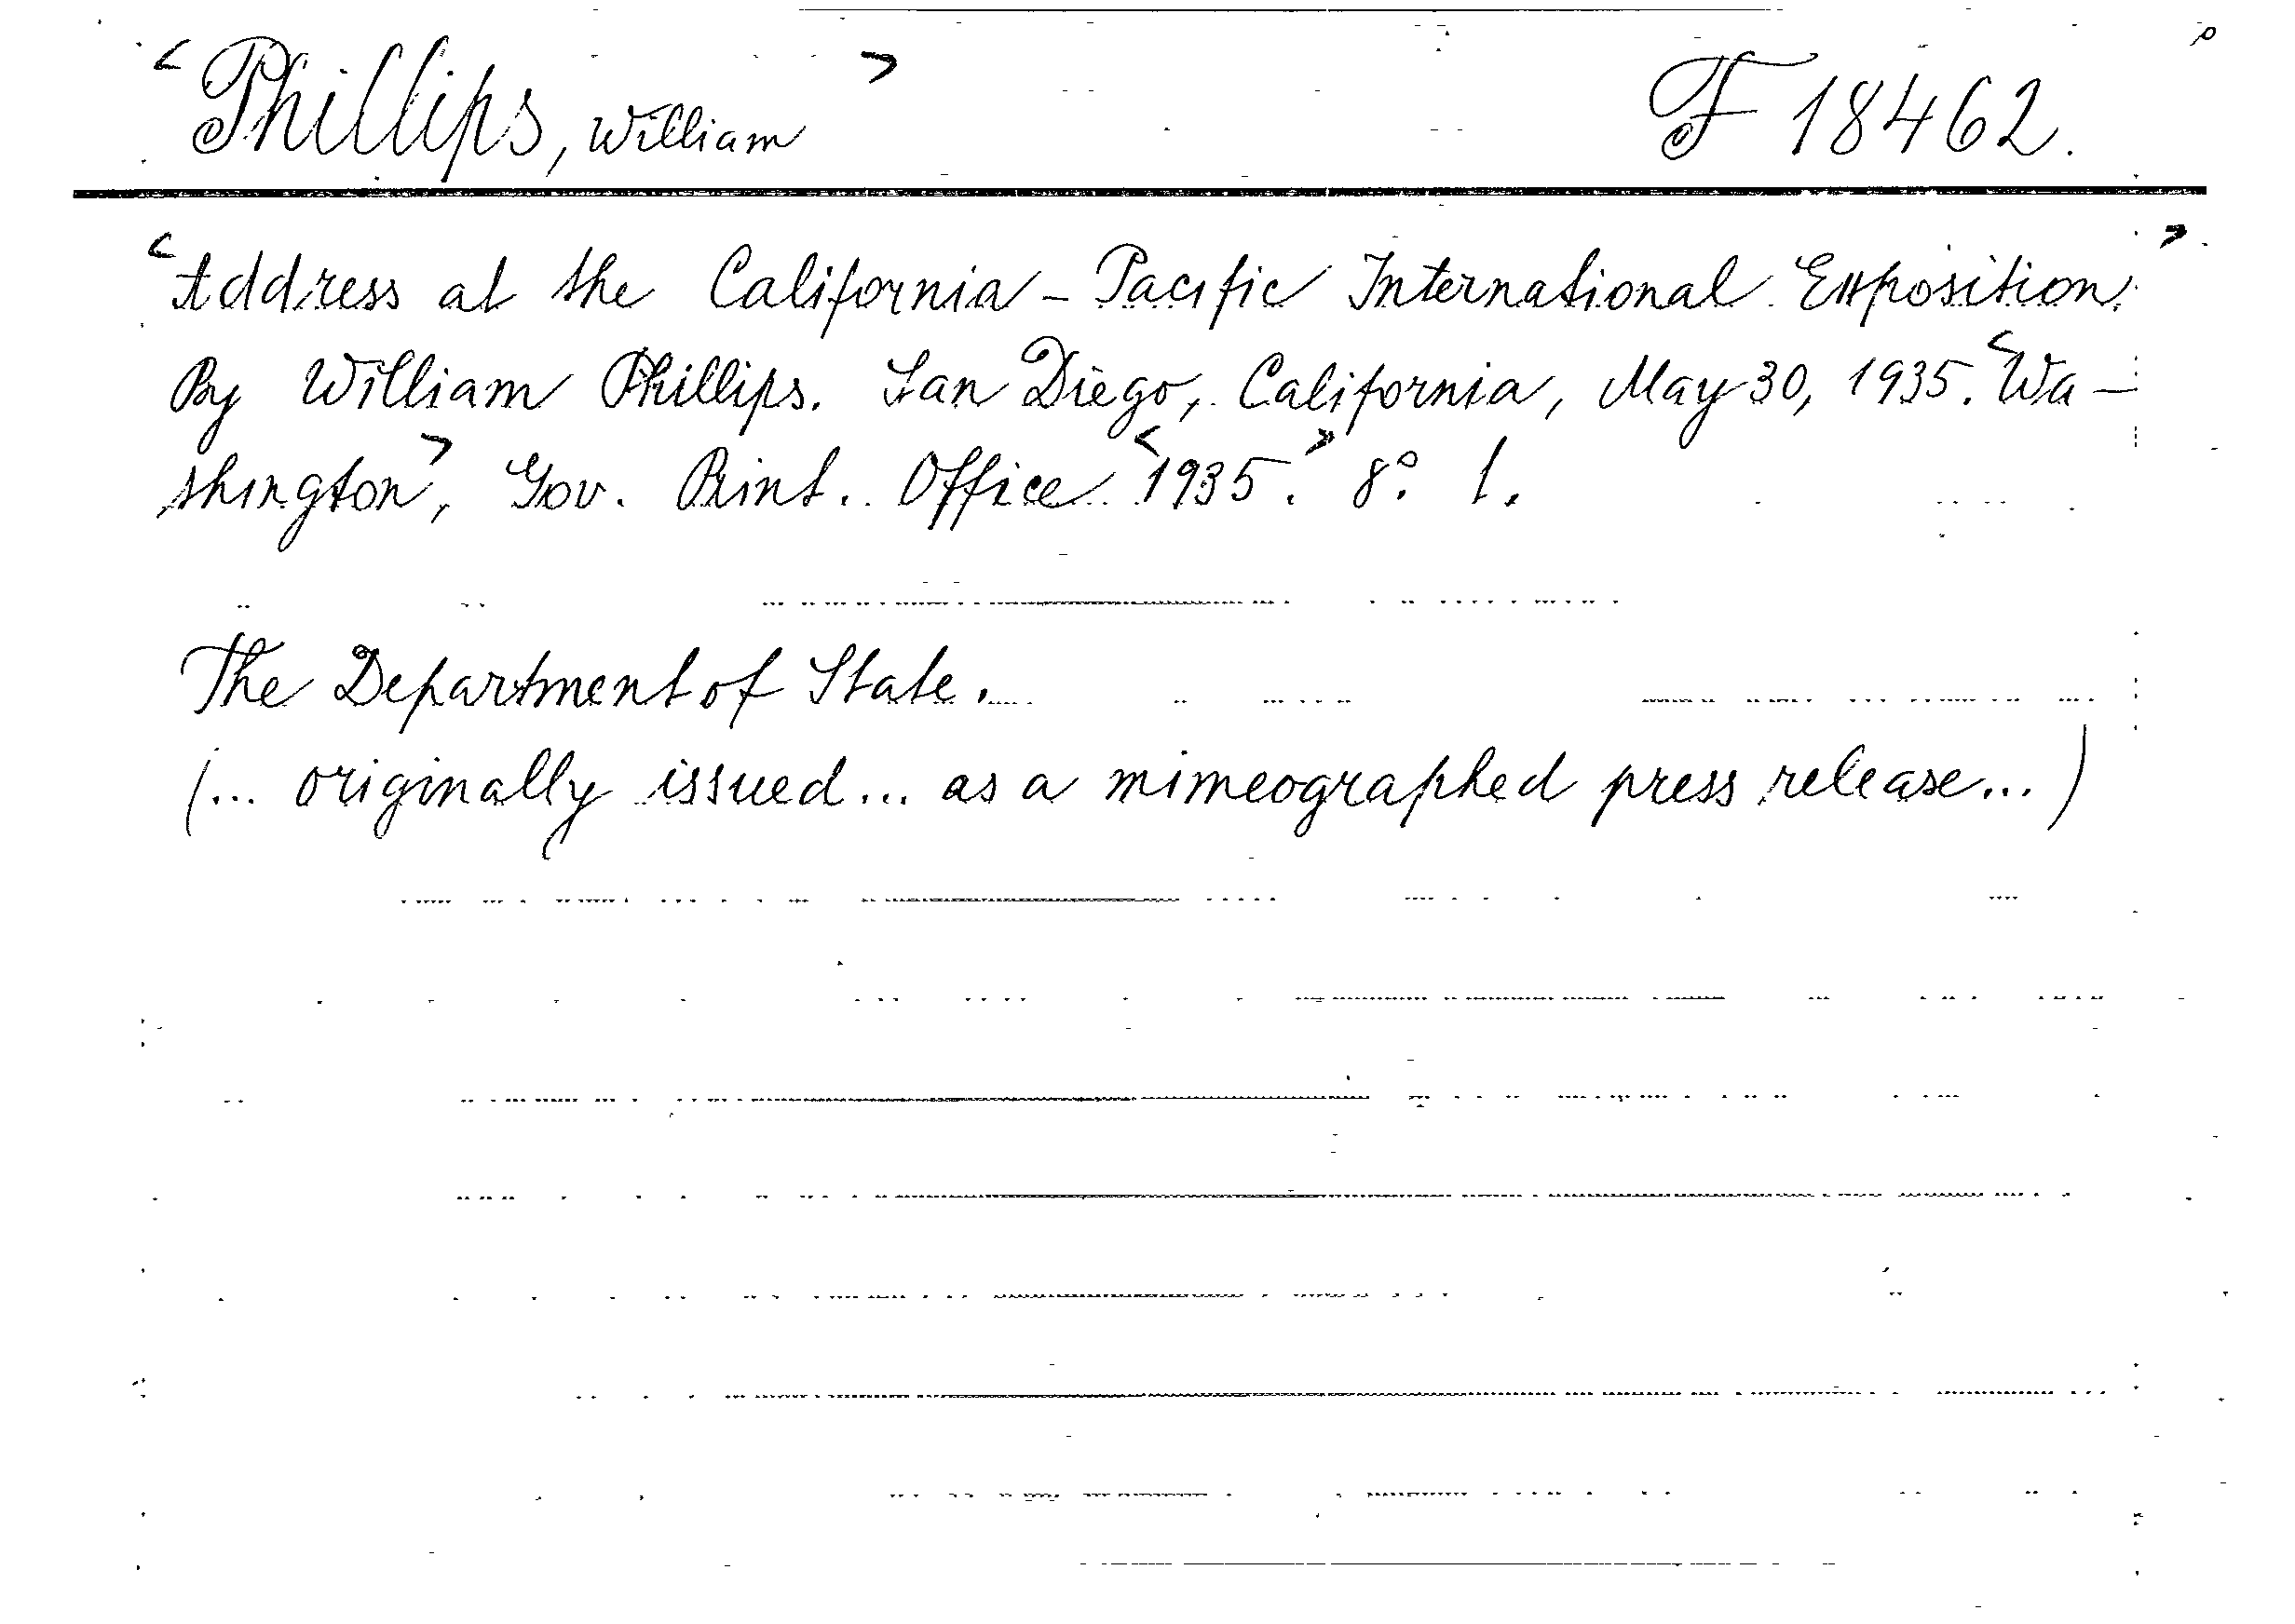 <Phillips, William> F 18462.
<Address at the California-Pacific International Exposition.>
By William Phillips. San Diego, California, May 30, 1935. <Wa-
shington>, Gov. Print. Office <1935.> 8° 1.
The Department of State.
(... originally issued... as a mimeographed press release...)